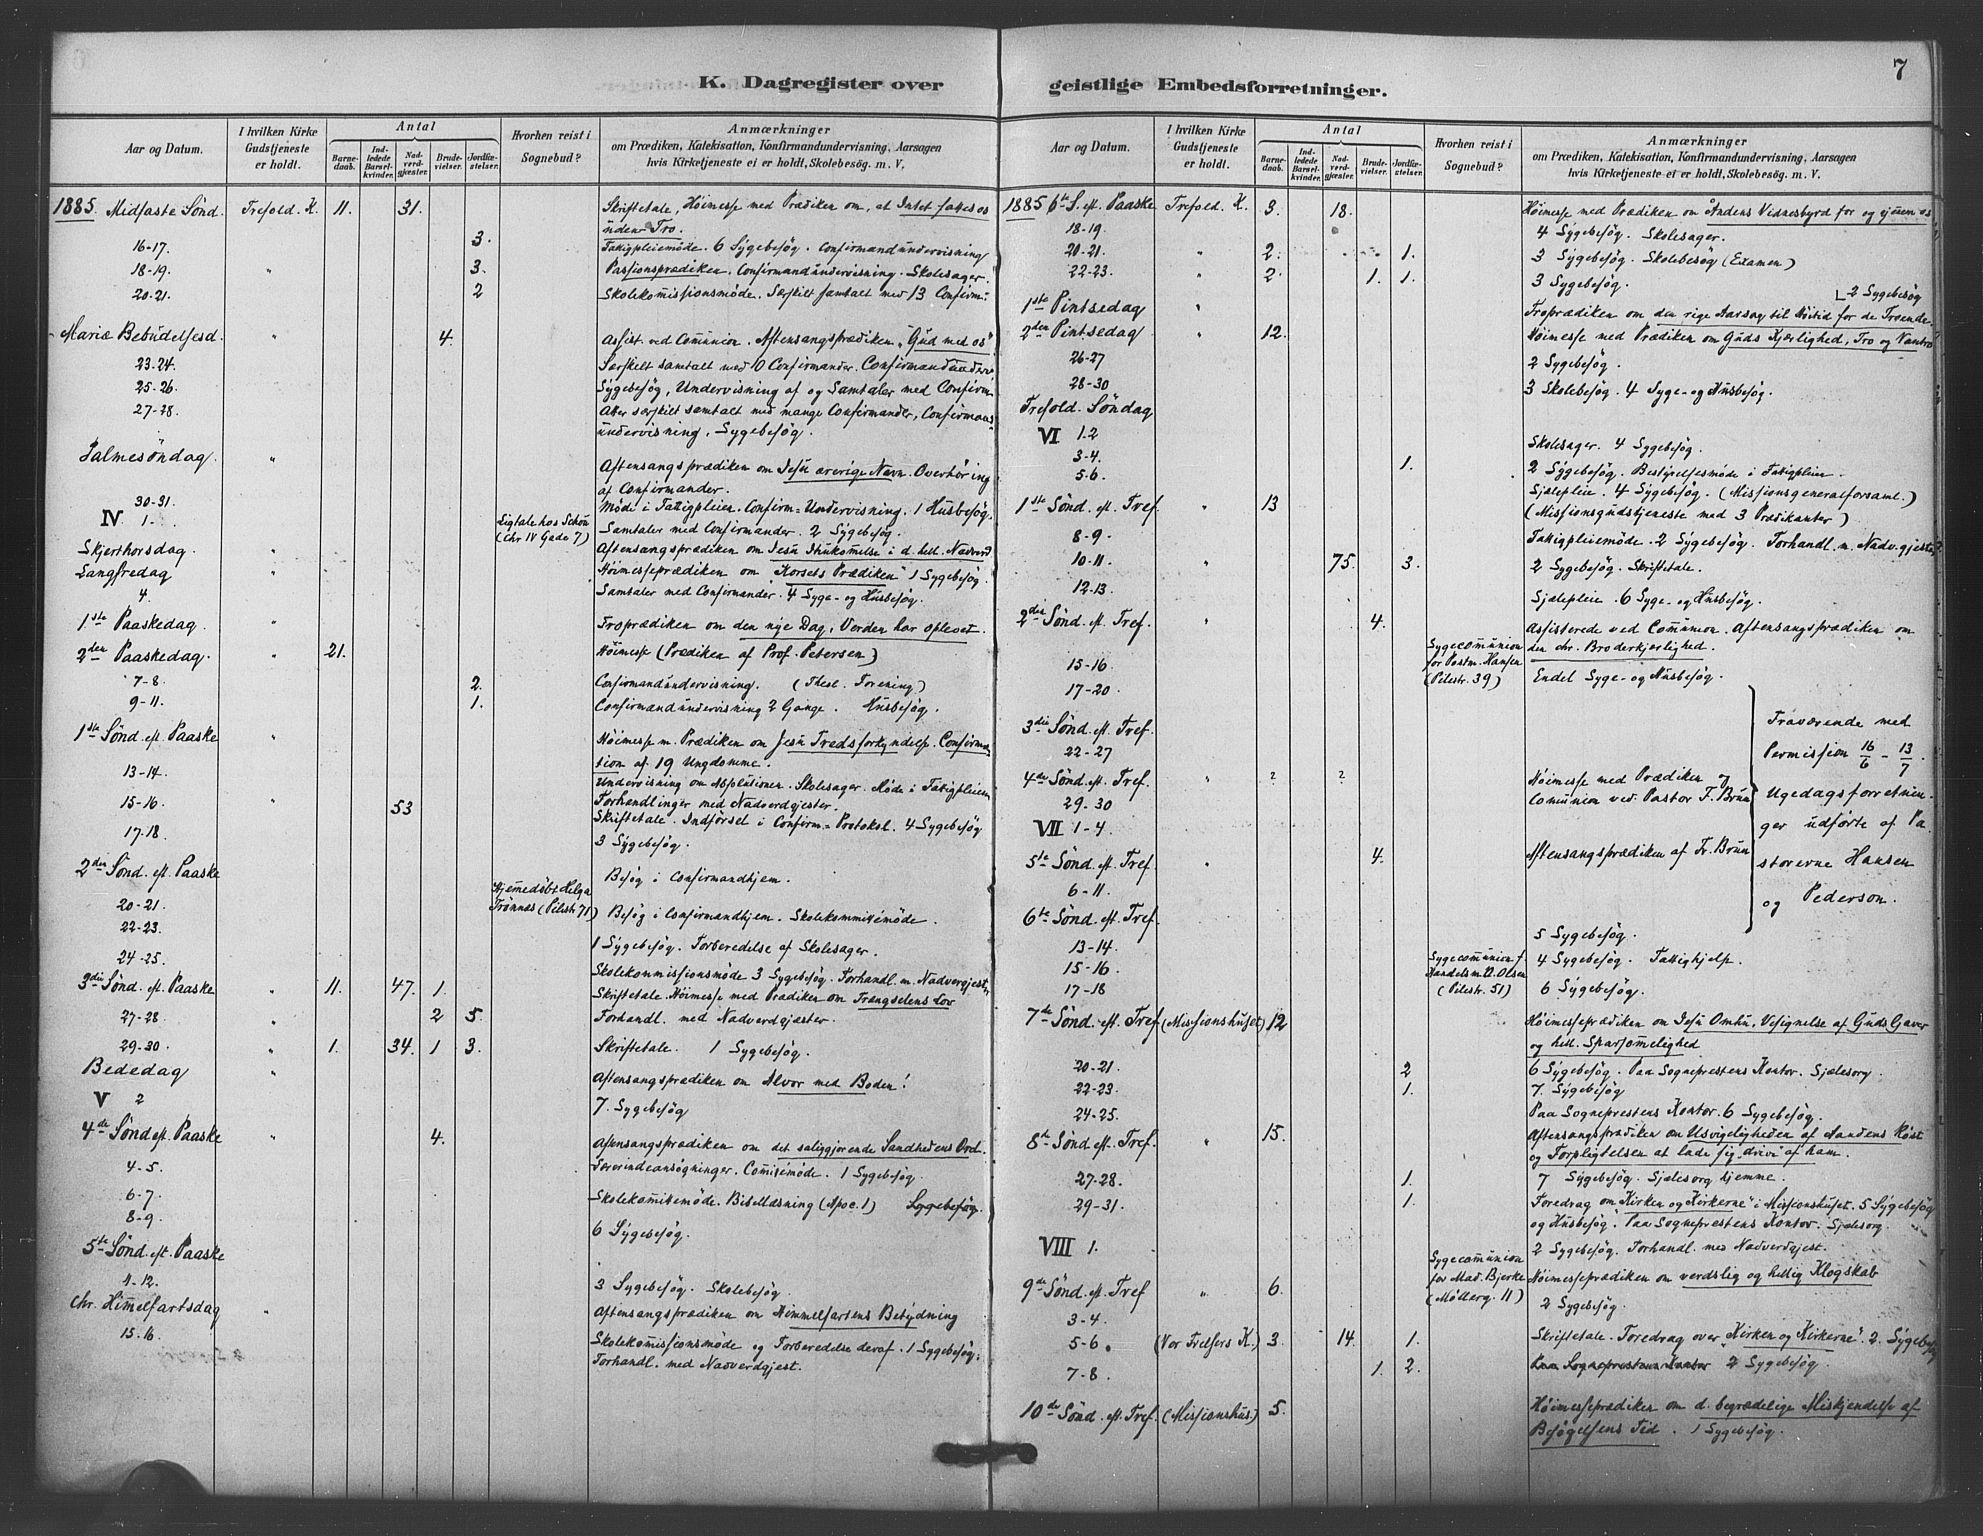 7
K. Dagregister over geistlige Embedsforretninger.
Aar og Datum. I hvilken Kirke Gudstjeneste er holdt. Antal Barnedaab. Indledede Barselkvinder. Nadverdgjæster. Brudevielser. Jordfæstelser. Hvorhen reist i Sognebud? Anmærkninger om Prædiken, Katekisation, Konfirmandundervisning, Aarsagen hvis Kirketjeneste ei er holdt, Skolebesög. m. V.
1885. Midfaste Sönd. Trefold. K. 11. 31. Skriftetale, Höimesse med Prædiken om, at Intet fattes os
uden Tro.
16-17. 3. Fattigpleiemöde. 6 Sygebesög. Confirmandundervisning
18-19. " 3. Passionsprædiken. Confirmandundervisning. Skolesager.
20-21. 2 Skolekommissionsmöde. Særskilt samtalt med 13 Confirm:
Mariæ Bebudelsesd. " 4. Assist. ved Communion. Aftensangsprædiken "Gud med os"
23-24. Særskilt samtalt med 10 Confirmander. Confirmandunderv.
25-26. Sygebesög, Undervisning af og Samtaler med Confirm.
27-28. Atter særskilt samtalt med mange Confirmander, Confirmand-
undervisning, Sygebesög.
Palmesöndag. " Aftensangsprædiken om Jesu ærerige Navn. Overhöring
af Confirmander.
30-31. Möde i Fattigpleien. Confirm-Undervisning. 1 Husbesög.
IV 1. Ligtale hos Schou (Chr IV Gade 7) Samtaler med Confirmander. 2 Sygebesög.
Skjerthorsdag. " Aftensangsprædiken om Jesu Ihukommelse i d. hell. Nadverd
Langfredag " Höimesseprædiken om "Korsets Prædiken" 1 Sygebesög
4. Samtaler med Confirmander. 4 Syge- og Husbesög.
1ste Paaskedag. " Froprædiken om den nye Dag, Verden har oplevet.
2den Paaskedag. " 21. Höimesse (Prædiken af Prof. Petersen)
7-8. 2. Confirmandundervisning. (Theol. Forening)
9-11. 1. Confirmandundervisning 2 Gange. Husbesög.
1ste Sönd. eft. Paaske " Höimesse m. Prædiken om Jesu Fredsforkyndelse. Confirma-
tion af 19 Ungdomme.
13-14. Undervisning om Absolutionen. Skolesager. Möde i Fattigpleien
15-16. " 53 Forhandlinger med Nadverdgjester.
Skriftetale. Indförsel i Confirm-Protokol. 4 Sygebesög
17-18. 3 Sygebesög.
2den Sönd. eft. Paaske Besög i Confirmandhjem.
20-21. Hjemmedöbt Helga Trönnæs (Pilestr. 71) Besög i Confirmandhjem. Skolekommitemöde.
22-23. 1 Sygebesög. Forberedelse af Skolesager.
24-25. Skolekommissionsmöde 3 Sygebesög. Forhandl. m. Nadverdgjester
3die Sönd. eft. Paaske " 11. 47. 1. Skriftetale. Höimesse med Prædiken om Trængselens Lov
27-28. " 2 5. Forhandl. med Nadverdgjæster.
29-30. " 1. 34. 1 3. Skriftetale. 1 Sygebesög.
Bededag " Aftensangsprædiken om Alvor med Boden!
V 2 7. Sygebesög
4de Sönd eft. Paaske " 4. Aftensangsprædiken om det saliggjørende Sandhedens Ord.
4-5. Comitémöde. 1 Sygebesög.
6-7. Skolekommitemöde. Bibellæsning (Apoc. 1) Sygebesög.
8-9. 6 Sygebesög.
5te Sönd. eft. Paaske
4-12. 3 Sygebesög. Skolebesög.
Chr. Himmelfartsdag " Aftensangsprædiken om Himmelfartens Betydning
15-16. Skolekomissionsmöde og Forberedelse deraf. 1 Sygebesög;
Forhandl. med Nadverdgjest.
Aar og Datum. I hvilken Kirke Gudstjeneste er holdt. Antal Barnedaab. Indledede Barselkvinder. Nadverdgjæster. Brudevielser. Jordfæstelser. Hvorhen reist i Sognebud? Anmærkninger om Prædiken, Katekisation, Konfirmandundervisning, Aarsagen hvis Kirketjeneste ei er holdt, Skolebesög. m. V.
1885 6te S. eft. Paaske Trefold. K. 3. 18. Höimesse med Prædiken om Åndens Vidnesbyrd for og igjennem os
18-19. 4 Sygebesög. Skolesager.
20-21. " 2. 1. 3 Sygebesög. Skolebesög (Examen)
22-23. " 2. 1. 1. 3 Sygebesög.
2 Sygebesög
1ste Pintsedag " Froprædiken om den rige Aarsag til Höitid for de Troende
2den Pintsedag " 12. Höimesse med Prædiken om Guds Kjærlighed, Tro og Vantro
26-27 2 Sygebesög.
28-30 3 Skolebesög. 4 Syge- og Husbesög.
Trefold. Söndag
VI 1.2 Skolesager. 4 Sygebesög.
3-4. 1. 2 Sygebesög. Bestyrelsesmöde i Fattigpleien.
5-6. Sjælepleie. 4 Sygebesög. (Missionsgeneralforsaml.)
1ste Sönd. eft. Tref. " 13 (Missionsgudstjeneste med 3 Prædikanter)
8-9. Fattigpleiemöde. 2 Sygebesög. Forhandl. m. Nadv.gjester.
10-11. " 75. 3. 2 Sygebesög. Skriftetale.
12-13. Sjælepleie. 6 Syge- og Husbesög.
2den Sönd. eft. Tref. " 4. Assisterede ved Communion. Aftensangsprædiken om
den chr. Broderkjerlighed.
15-16. Sygecommunion for Postm. Hansen (Pilestr. 39) Endel Syge- og Husbesög.
17-20.
3die Sönd. eft. Tref. Fraværende med
22-27 Permission 16/6 - 13/7.
4de Sönd. eft. Tref. " ? ? Höimesse med Prædiken og
Communion ved Pastor F. Brun
29-30 Ugedagsforretnin-
VII 1-4. ger udförte af Pa-
5te Sönd. eft. Tref. " 4. Aftensangsprædiken af Fr. Brun storerne Hansen
6-11. og Pederson.
6te Sönd. eft. Tref.
13-14. 5 Sygebesög.
15-16. Sygecommunion f. Handelsm. O. Olsen (Pilestr. 51) 4 Sygebesög. Fattighjelp.
17-18 6 Sygebesög.
7de Sönd. eft. Tref. (Missionshuset) 12 Höimesseprædiken om Jesu Omhu, Velsignelse af Guds Gaver
og hell. Sparsommelighed
20-21. 2 6 Sygebesög. Paa Sogneprestens Kontor. Sjælesorg.
22-23. 1. 7. Sygebesög
24-25. Paa Sogneprestens Kontor. 6 Sygebesög.
8de Sönd. eft. Tref. " 15. Aftensangsprædiken om Usvigeligheden af Aandens Röst
og Forpligtelsen at lade sig drive af ham.
27-28. 1. 7 Sygebesög. Sjælesorg hjemme.
29-31. 1. Foredrag om "Kirken og Kirkerne" i Missionshuset. 5 Sygebesög
og Husbesög. Paa Sogneprestens Kontor. Sjælesorg.
VIII 1. 2 Sygebesög. Forhandl. med Nadverdgjest.
9de Sönd. eft. Tref " 6. Sygecommunion for Mad. Bjerke (Möllerg. 11) Höimesseprædiken om verdslig og hellig Klogskab
3-4. 2 Sygebesög.
5-6. (Vor Frelsers K.) 3. 14. 1. Skriftetale. Foredrag over "Kirken og Kirkerne". 2. Sygebesög
7-8. 1. 2. Paa Sogneprestens Kontor 2 Sygebesög.
10de Sönd. eft. Tref. (Missionshus.) 5. Höimesseprædiken om d. begrædelige Miskjendelse af
Besögelsens Tid. 1 Sygebesög.